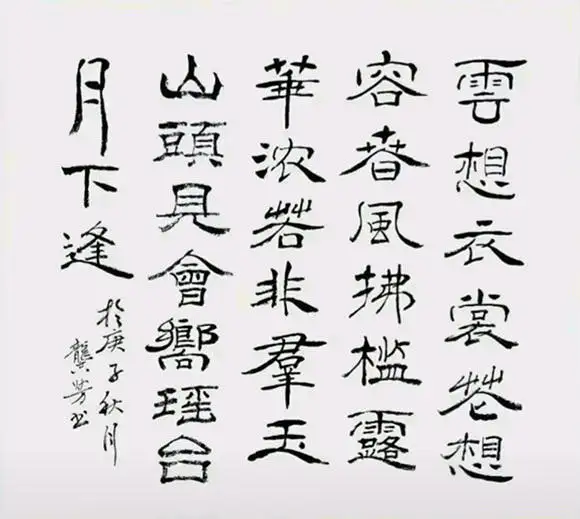 雲想衣裳花想
容春風拂槛露
華浓若非羣玉
山頭見會嚮瑶台
月下逢
於庚子秋月
龔芳书